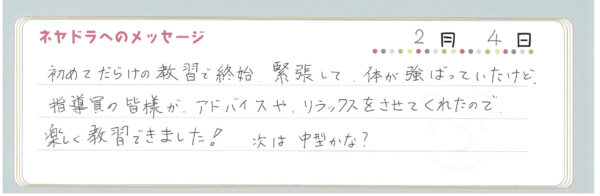 ネヤドラへのメッセージ
2月 4日
初めてだらけの教習で終始、緊張して、体が強ばっていたけど、
指導員の皆様が、アドバイスや、リラックスをさせてくれたので、
楽しく教習できました! 次は中型かな?